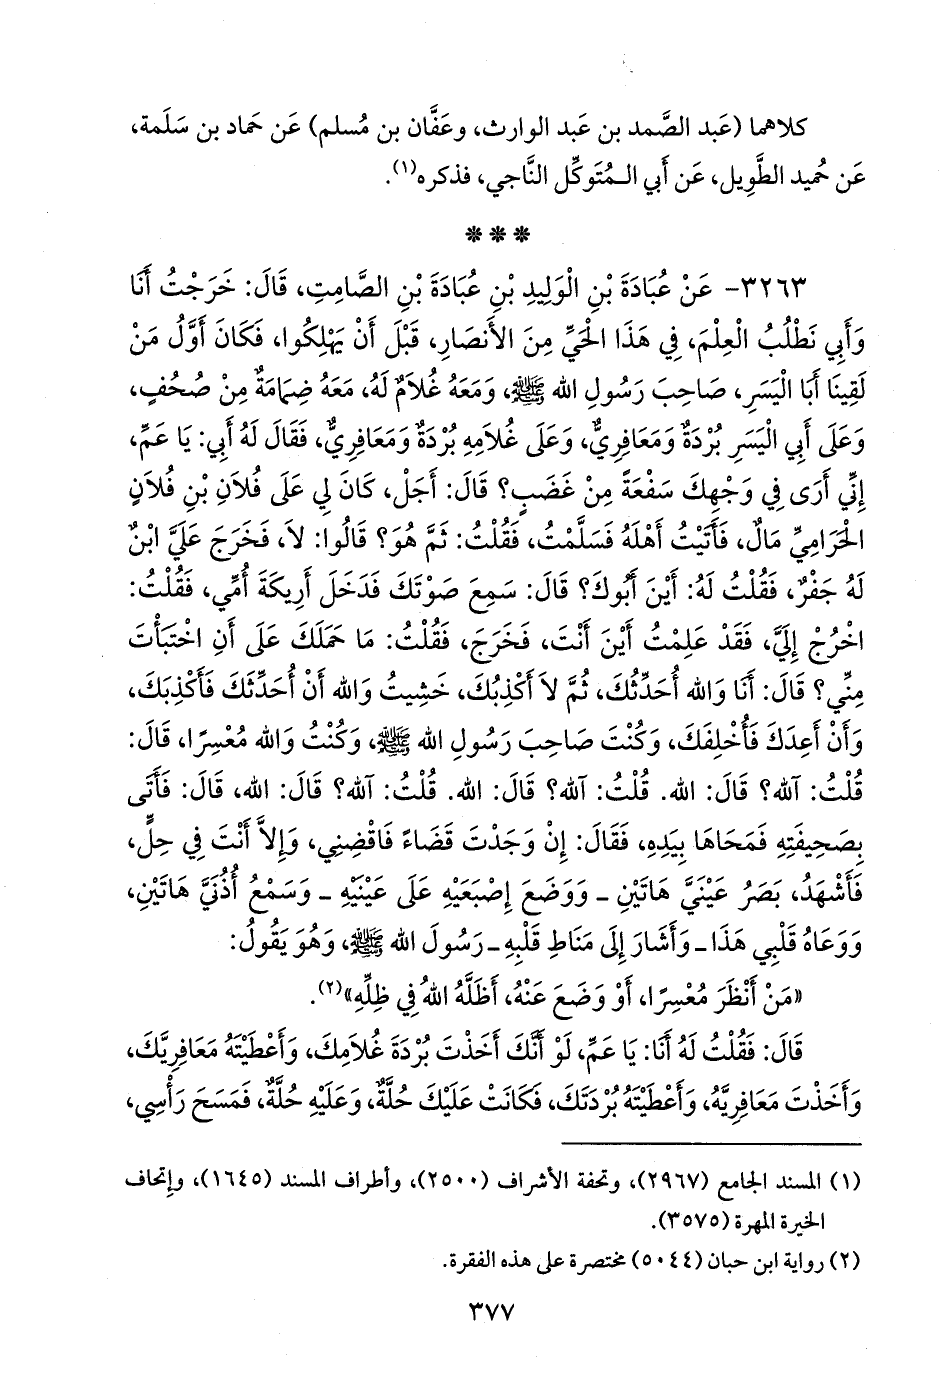 كلاهما (عَبد الصَّمد بن عَبد الوارث، وعَفَّان بن مُسلم) عَن حَماد بن سَلَمة،
عَن حُميد الطَّوِيل، عَن أَبي الـمُتَوكِّل النَّاجي، فذكره(١).
***
٣٢٦٣- عَنْ عُبَادَةَ بْنِ الْوَلِيدِ بْنِ عُبَادَةَ بْنِ الصَّامِتِ، قَالَ: خَرَجْتُ أَنَا
وَأَبِي نَطْلُبُ الْعِلْمَ، فِي هَذَا الْحَيِّ مِنَ الأَنصَارِ، قَبْلَ أَنْ يَهْلِكُوا، فَكَانَ أَوَّلُ مَنْ
لَقِينَا أَبَا الْيَسَرِ، صَاحِبَ رَسُولِ الله ﷺ، وَمَعَهُ غُلاَمٌ لَهُ، مَعَهُ ضِمَامَةٌ مِنْ صُحُفٍ،
وَعَلَى أَبِي الْيَسَرِ بُرْدَةٌ وَمَعَافِرِيٌّ، وَعَلَى غُلاَمِهِ بُرْدَةٌ وَمَعَافِرِيٌّ، فَقَالَ لَهُ أَبِي: يَا عَمِّ،
إِنِّي أَرَى فِي وَجْهِكَ سَفْعَةً مِنْ غَضَبٍ؟ قَالَ: أَجَلْ، كَانَ لِي عَلَى فُلاَنِ بْنِ فُلاَنٍ
الْحَرَامِيِّ مَالٌ، فَأَتَيْتُ أَهْلَهُ فَسَلَّمْتُ، فَقُلْتُ: ثَمَّ هُوَ؟ قَالُوا: لاَ، فَخَرَجَ عَلَيَّ ابْنٌ
لَهُ جَفْرٌ، فَقُلْتُ لَهُ: أَيْنَ أَبُوكَ؟ قَالَ: سَمِعَ صَوْتَكَ فَدَخَلَ أَرِيكَةَ أُمِّي، فَقُلْتُ:
اخْرُجْ إِلَيَّ، فَقَدْ عَلِمْتُ أَيْنَ أَنْتَ، فَخَرَجَ، فَقُلْتُ: مَا حَمَلَكَ عَلَى أَنِ اخْتَبَأْتَ
مِنِّي؟ قَالَ: أَنَا وَالله أُحَدِّثُكَ، ثُمَّ لاَ أَكْذِبُكَ، خَشِيتُ وَالله أَنْ أُحَدِّثَكَ فَأَكْذِبَكَ،
وَأَنْ أَعِدَكَ فَأُخْلِفَكَ، وَكُنْتَ صَاحِبَ رَسُولِ الله ﷺ، وَكُنْتُ وَالله مُعْسِرًا، قَالَ:
قُلْتُ: آلله؟ قَالَ: الله. قُلْتُ: آلله؟ قَالَ: الله. قُلْتُ: آلله؟ قَالَ: الله، قَالَ: فَأَتَى
بِصَحِيفَتِهِ فَمَحَاهَا بِيَدِهِ، فَقَالَ: إِنْ وَجَدْتَ قَضَاءً فَاقْضِنِي، وَإِلاَّ أَنْتَ فِي حِلٍّ،
فَأَشْهَدُ، بَصَرُ عَيْنَيَّ هَاتَيْنِ ـ وَوَضَعَ إِصْبَعَيْهِ عَلَى عَيْنَيْهِ ـ وَسَمْعُ أُذُنَيَّ هَاتَيْنِ،
وَوَعَاهُ قَلْبِي هَذَا ـ وَأَشَارَ إِلَى مَنَاطِ قَلْبِهِ ـ رَسُولَ الله ﷺ، وَهُوَ يَقُولُ:
«مَنْ أَنْظَرَ مُعْسِرًا، أَوْ وَضَعَ عَنْهُ، أَظَلَّهُ اللهُ فِي ظِلِّهِ»(٢).
قَالَ: فَقُلْتُ لَهُ أَنَا: يَا عَمِّ، لَوْ أَنَّكَ أَخَذْتَ بُرْدَةَ غُلاَمِكَ، وَأَعْطَيْتَهُ مَعَافِرِيَّكَ،
وَأَخَذْتَ مَعَافِرِيَّهُ، وَأَعْطَيْتَهُ بُرْدَتَكَ، فَكَانَتْ عَلَيْكَ حُلَّةٌ، وَعَلَيْهِ حُلَّةٌ، فَمَسَحَ رَأْسِي،
(١) المسند الجامع (٢٩٦٧)، وتحفة الأشراف (٢٥٠٠)، وأطراف المسند (١٦٤٥)، وإتحاف
الخيرة المهرة (٣٥٧٥).
(٢) رواية ابن حبان (٥٠٤٤) مختصرة على هذه الفقرة.
٣٧٧